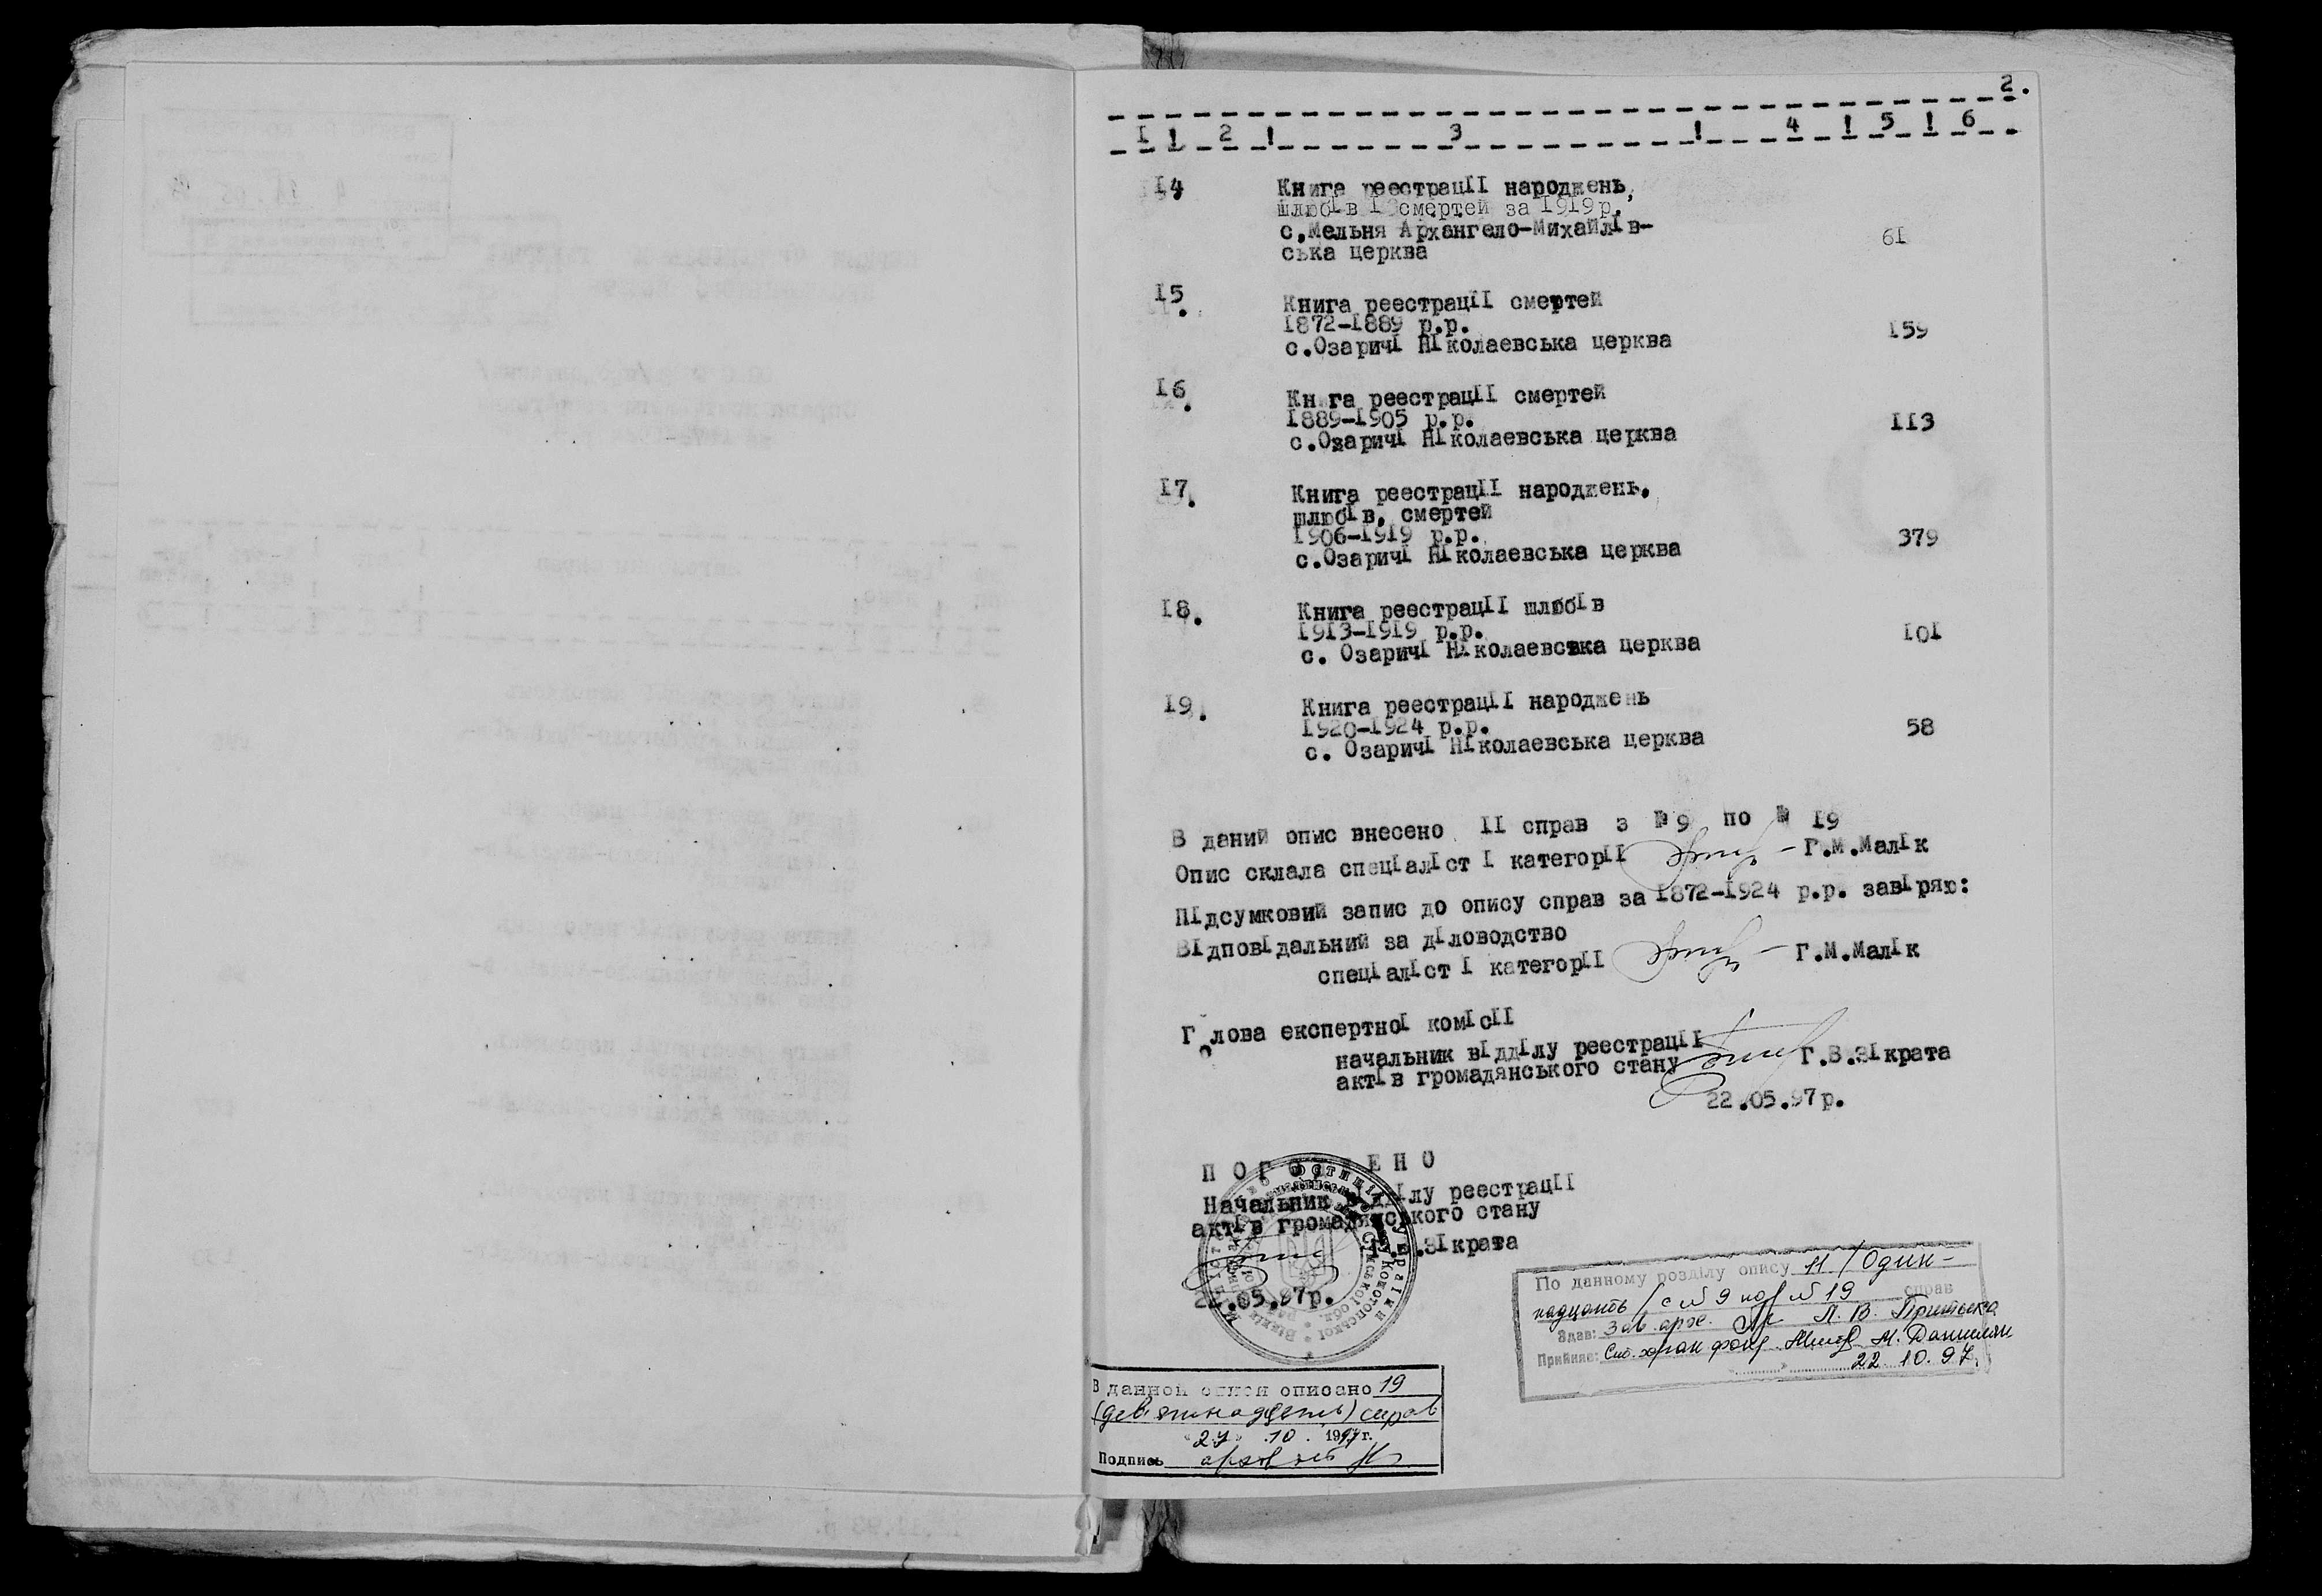 2.
I ! 2 ! 3 ! 4 ! 5 ! 6
I4 Книга реестрацII народжень,
шлюбIв I смертей за I9I9р.
с.Мельня Архангело-МихайлIв-
ська церква 6I
I5. Книга реестрацII смертей
I872-I889 р.р.
с.ОзаричI НIколаевська церква I59
I6. Книга реестрацII смертей
I889-I905 р.р.
с.ОзаричI НIколаевська церква II3
I7. Книга реестрацII народжень,
шлюбIв, смертей
I906-I9I9 р.р.
с.ОзаричI НIколаевська церква 379
I8. Книга реестрацII шлюбIв
I9I3-I9I9 р.р.
с. ОзаричI НIколаевська церква I0I
I9. Книга реестрацII народжень
I920-I924 р.р.
с. ОзаричI НIколаевська церква 58
В даний опис внесено II справ з №9 по № I9
Опис склала спецIалIст I категорII - Г.М.МалIк
ПIдсумковий запис до опису справ за I872-I924 р.р. завIряю:
ВIдповIдальний за дIловодство
спецIалIст I категорII - Г.М.МалIк
Голова експертноI комIсII
начальник вIддIлу реестрацII
актIв громадянського стану Г.В.ЗIкрата
22.05.97р.
П О Г О Е Н О
Начальник вIддIлу реестрацII
актIв громадянського стану
Г.В.ЗIкрата
22.05.97р.
По данному розділу опису 11 /Один-
надцять/ с №9 по №19 справ
Здав: Зав. арх. Л. В. Притыка
Прийняв: М. Данилян
22.10.97.
В данной описи описано 19
(дев'ятнадцять) справ
"27" 10. 1997г.
Подпись